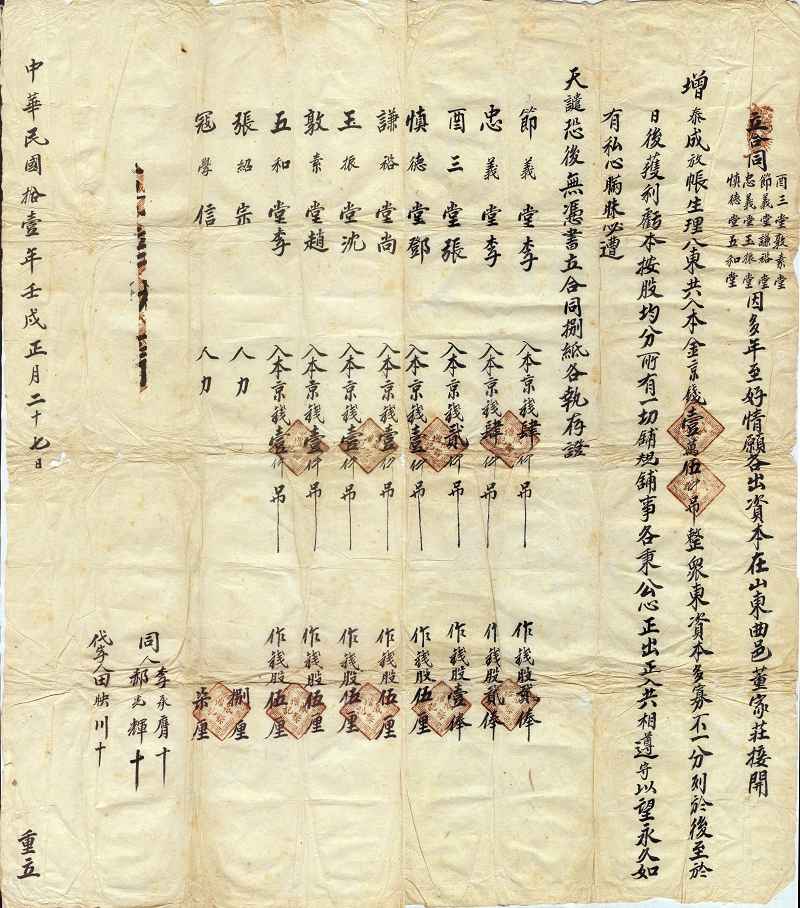 立合同酉三堂敦素堂
節義堂謙裕堂
忠義堂玉振堂
慎德堂五和堂
因多年至好情願各出資本在山東曲邑董家莊接開
增泰成放帳生理八東共入本金京錢壹萬伍仟吊整眾東資本多寡不一分列於後至於
日後獲利虧本按股均分所有一切鋪規鋪事各秉公心正出正入共相遵守以望永久如
有私心瞞昧必遭
天譴恐後無憑書立合同捌紙各執存證
節義堂李 入本京錢肆仟吊 作錢股貳俸
忠義堂李 入本京錢肆仟吊 作錢股貳俸
酉三堂張 入本京錢貳仟吊 作錢股壹俸
慎德堂鄧 入本京錢壹仟吊 作錢股伍厘
謙裕堂尚 入本京錢壹仟吊 作錢股伍厘
玉振堂沈 入本京錢壹仟吊 作錢股伍厘
敦素堂趙 入本京錢壹仟吊 作錢股伍厘
五和堂李 入本京錢壹仟吊 作錢股伍厘
張紹宗 人力 捌厘
冦學信 人力 柒厘
同人李永膺十
郝光輝十
代字人田映川十
中華民國拾壹年壬戌正月二十七日 重立